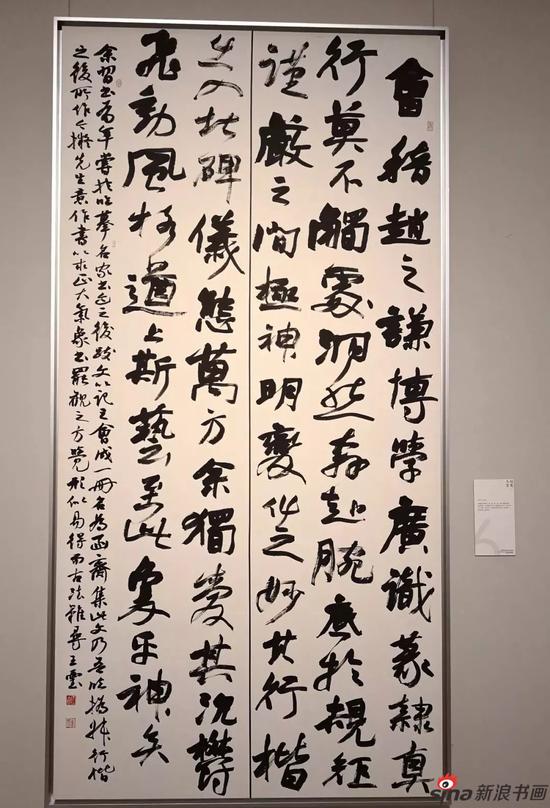 會稽趙之謙博學廣識篆隸真
行莫不觸處洞然奔赴腕底於規矩
謹嚴之間極神明變化之妙其行楷
出入北碑儀態萬方余獨愛其沈鬱
飛動風格遒上斯藝至此乎神矣
余習書有年嘗於臨摹名家書迹之後跋文以記之會成一冊名為函齋集此文乃吾臨撝叔行楷
之後所作今擬先生意作書以求正大氣象書罷觀之方覺形似易得而古法難尋王雲
sina新浪书画